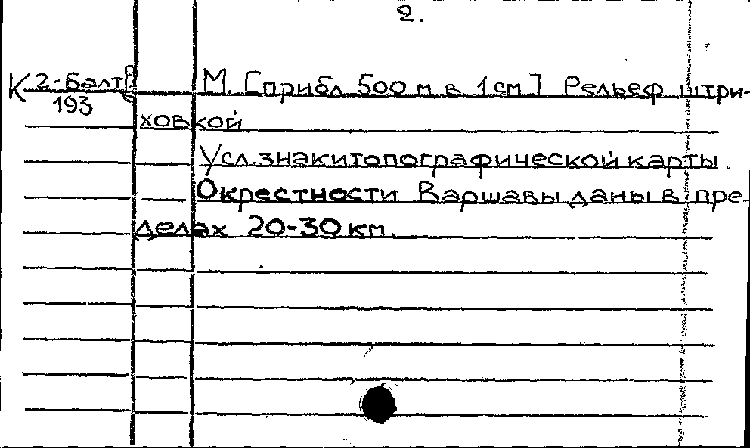 2.
К 2-Балт
193
М. [прибл 500 м в 1 см] Рельеф штри-
ховкой
Усл. знаки топографической карты.
Окрестности Варшавы даны в пре-
делах 20-30 км.